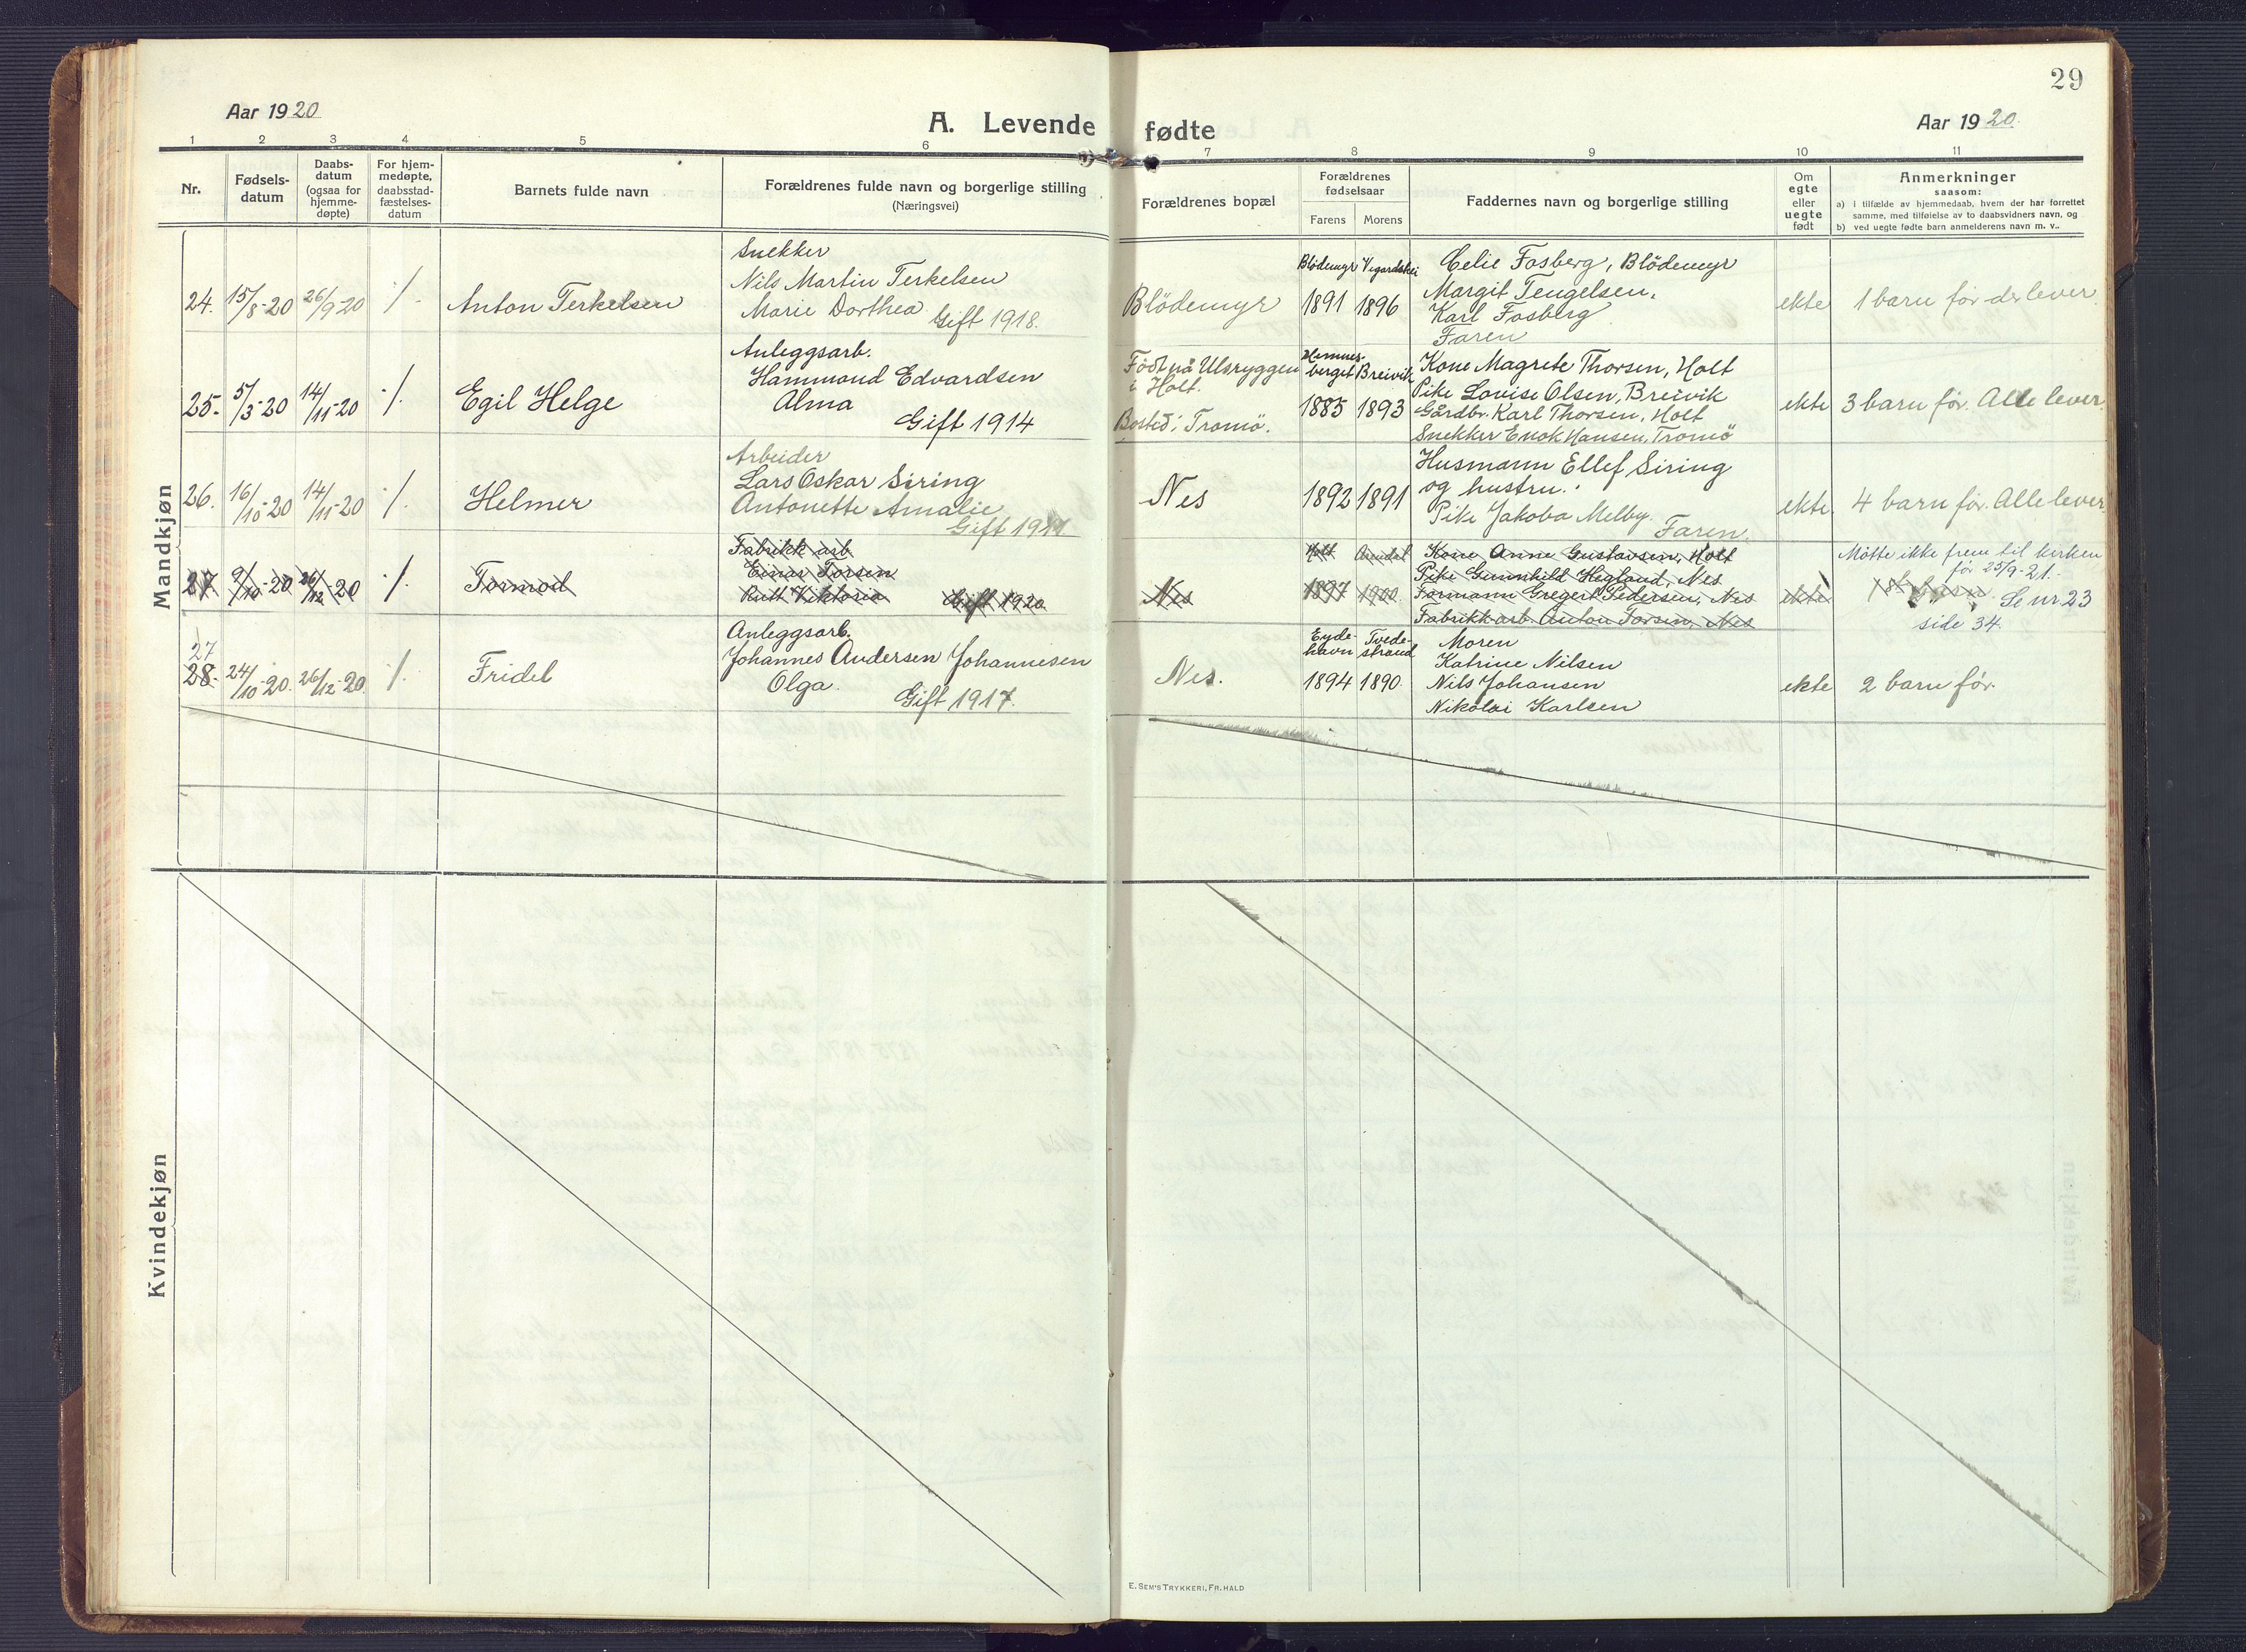 29
Aar 1920
A. Levende fødte
Aar 1920.
1 2 3 4 5 6 7 8 9 10 11
Nr.
Fødsels-
datum
Daabs-
datum
(ogsaa for
hjemme-
døpte)
For hjem-
medøpte,
daabsstad-
fæstelses-
datum
Barnets fulde navn
Forældrenes fulde navn og borgerlige stilling
(Næringsvei)
Forældrenes bopæl
Forældrenes
fødselsaar
Farens Morens
Faddernes navn og borgerlige stilling
Om
egte
eller
uegte
født
Anmerkninger
saasom:
a) i tilfælde av hjemmedaab, hvem der har forrettet
samme, med tilføielse av to daabsvidners navn, og
b) ved uegte fødte barn anmelderens navn m. v..
Mandkjøn
24. 15/8-20 26/9-20 ./. Anton Terkelsen
Snekker
Nils Martin Terkelsen
Marie Dorthea
Gift 1918.
Blödemyr
Blödemyr Vegardshei
1891 1896
Celie Fosberg, Blödemyr
Margit Tengelsen.
Karl Fosberg
Faren
ekte
1 barn før der lever
25. 5/3-20 14/11-20 ./. Egil Helge
Anleggsarb.
Hammond Edvardsen
Alma
Gift 1914
Född på Ulsryggen
i Holt.
Bosted: Tromö.
Hemnes-
berget Breivik
1885 1893
Kone Magrete Thorsen, Holt
Pike Lovise Olsen, Breivik
Gårdbr. Karl Thorsen, Holt
Snekker Enok Hansen, Tromö
ekte
3 barn før. Alle lever.
26. 16/10-20 14/11-20 ./. Helmer
Arbeider
Lars Oskar Siring
Antonette Amalie
Gift 1911
Nes
1892 1891
Husmann Ellef Siring
og hustru.
Pike Jakoba Melby.
Faren.
ekte.
4 barn før. Alle lever
27 9/10-20 26/12-20 ./. Tormod
Fabrikk arb
Einar Torsen
Rutt Viktoria
Gift 1920
Nes
Holt Arendal
1897 1900
Kone Anne Gustavsen, Holt
Pike Gunnhild Hegland, Nes
Formann Gregert Pedersen, Nes
Fabrikkarb Anton Torsen, Nes
ekte
Møtte ikke frem til kirken
før 25/9-21.
Se nr. 23
side 34.
27
28. 24/10-20. 26/12-20. ./. Fridel
Anleggsarb.
Johannes Andersen Johannesen
Olga.
Gift 1917.
Nes.
Eyde-
havn Tvede-
strand
1894 1890.
Moren
Katrine Nilsen
Nils Johansen
Nikolai Karlsen
ekte
2 barn før.
Kvindekjøn
E. SEM'S TRYKKERI, FR.HALD